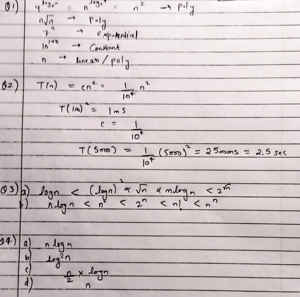 Q1) 4^log₂n = n^log₂4 = n² → Poly
n√n → Poly
7^n → exponential
→ Constant
n → linear / poly
Q2) T(n) = cn² = 1/10⁴ n²
= 1ms
c = 1/10⁴
T(5000) = 1/10⁴ (5000)² = 2500ms = 2.5 sec
Q3) a) logn < (logn)² < √n < nlogn <
b) nlogn < < 2^n < n! < n^n
Q4) a) n logn
b)
c) n/2 × logn
d) n